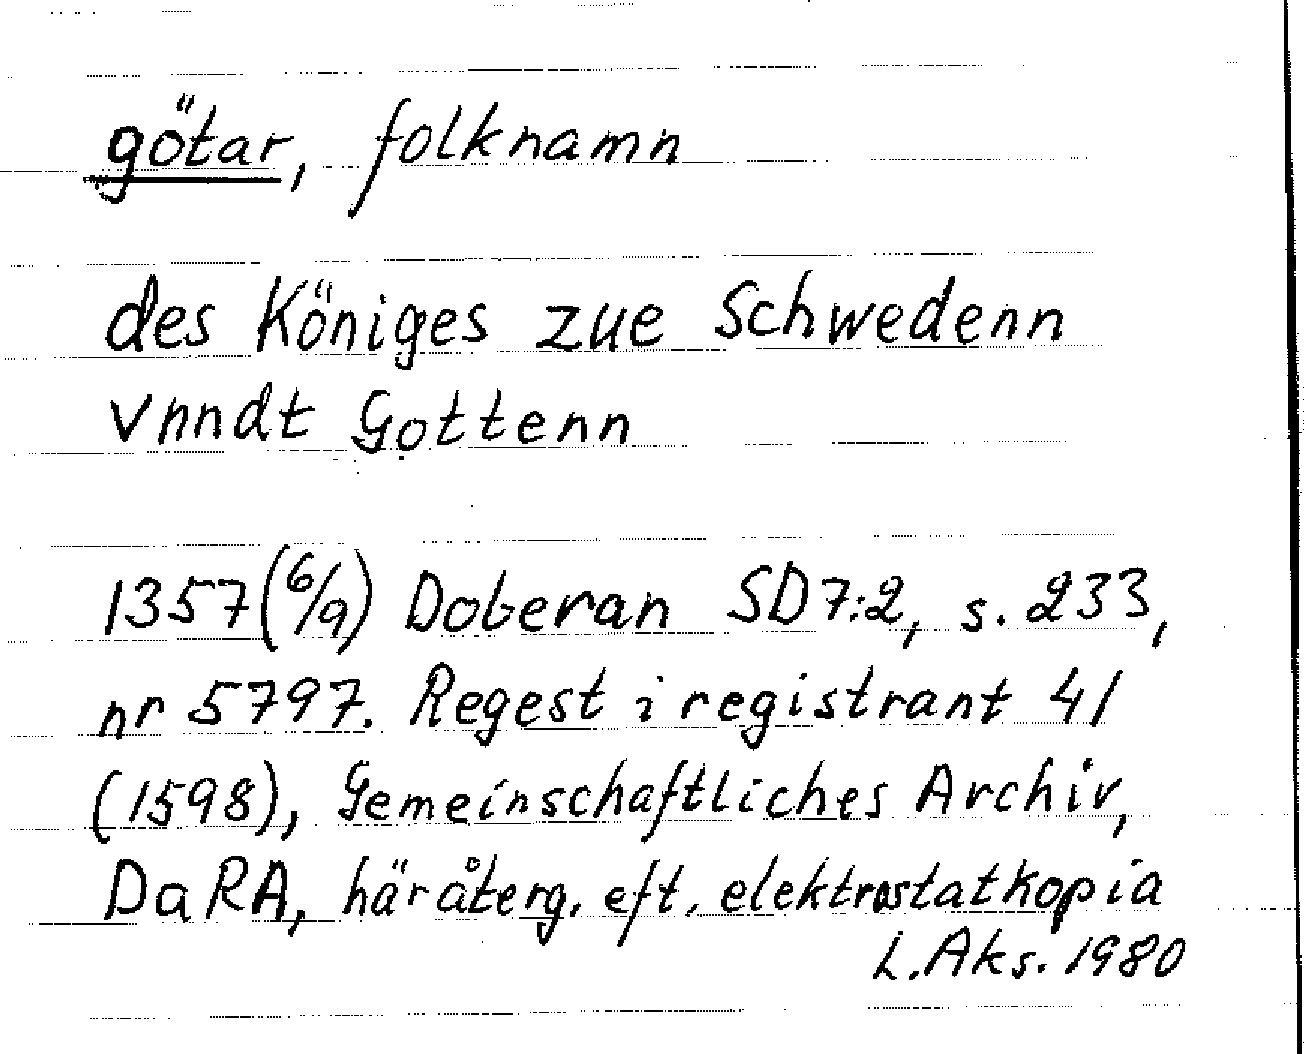 götar, folknamn
des Königes zue Schwedenn
vnndt Gottenn
1357 (6/9) Doberan SD 7:2, s. 233,
nr 5797. Regest i registrant 41
(1598), Gemeinschaftliches Archiv,
DaRA, här återg. eft. elektrostatkopia
L. Aks. 1980